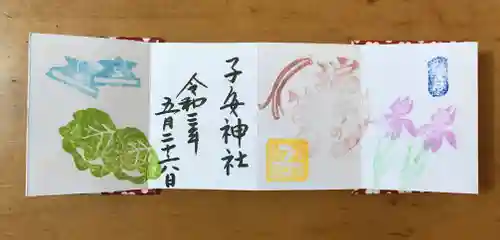 子安神社
令和二年
五月二十六日